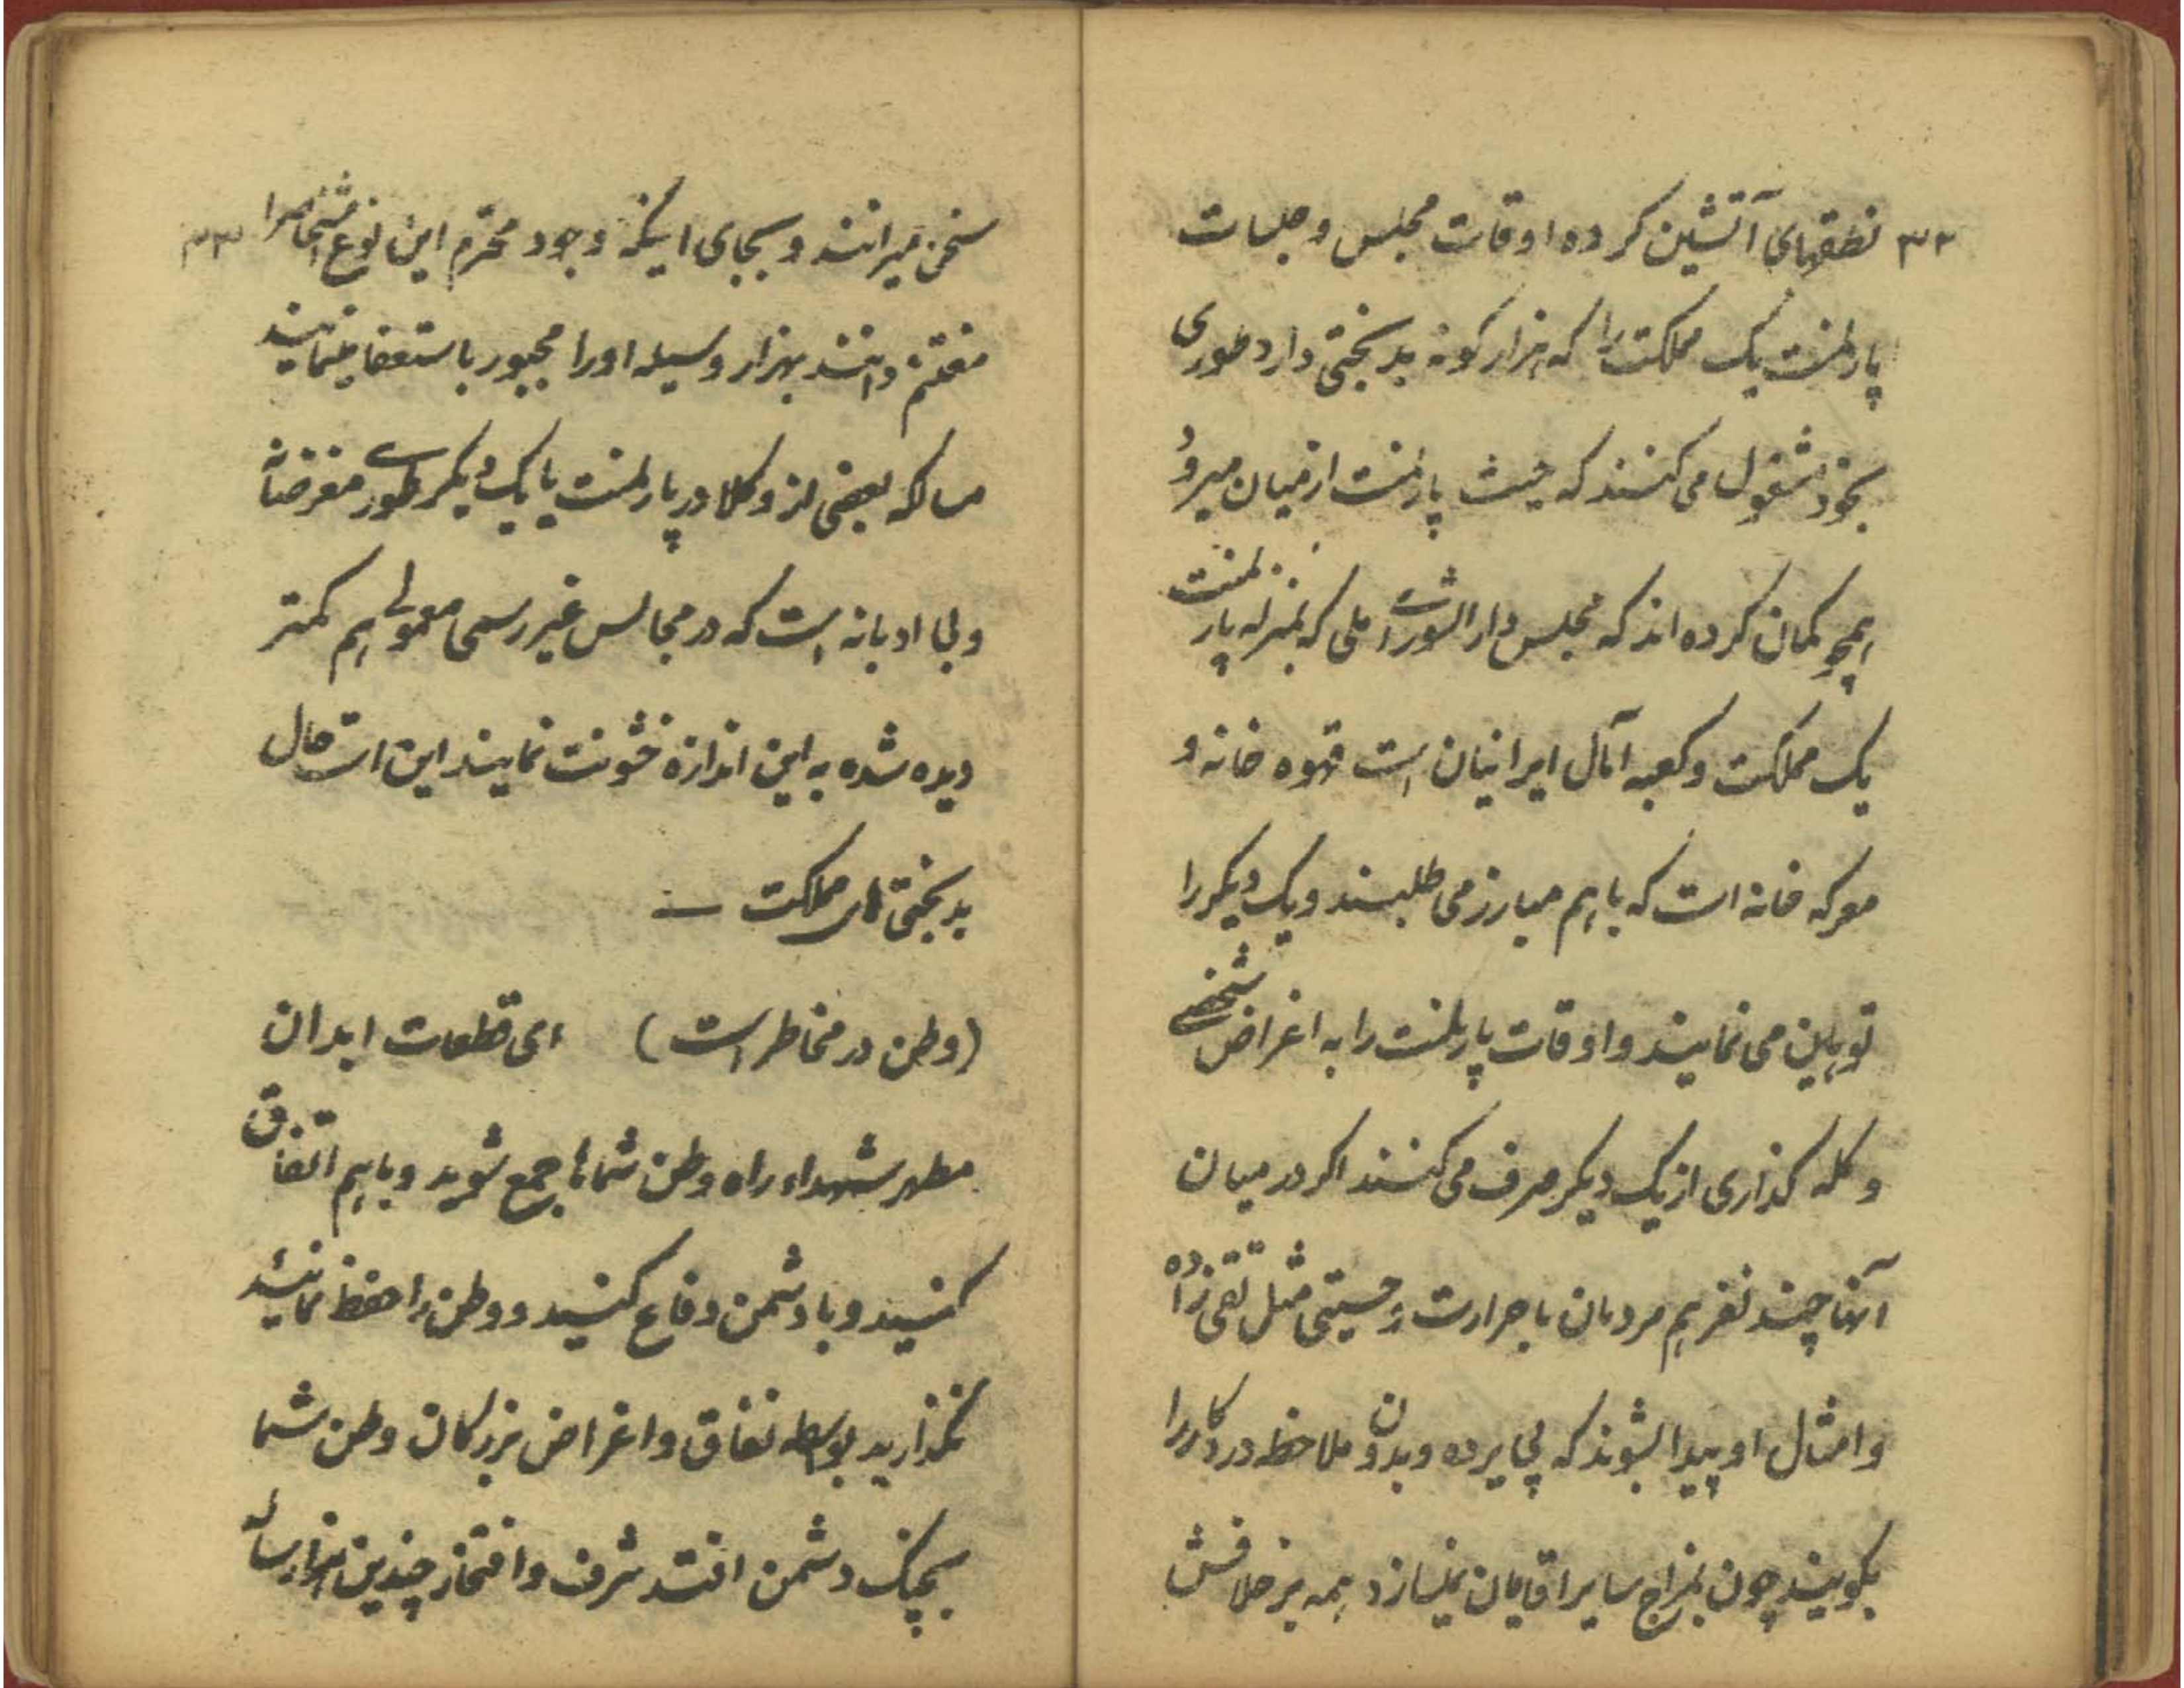 ۳۲ نطقهای آتشین کرده اوقات مجلس و جلسات
پارلمنت یک مملکت را که هزار کونه بدبختی دارد طوری
بخود مشغول می کنند که حیث پارلمنت از میان میرود
همچو کمان کرده اند که مجلس دار الشورای ملی که بمنزله پارلمنت
یک مملکت و کعبه آمال ایرانیان است قهوه خانه و
معرکه خانه است که با هم مبارز می طلبند و یک دیکر را
توهین می نمایند و اوقات پارلمنت را به اغراض شخصی
و کله کذاری از یک دیکر صرف می کنند اکر در میان
آنها چند نفر هم مردمان با حرارت و حسیتی مثل تقی زاده
و امثال او پیدا بشوند که بی پرده و بدون ملاحظه درد کار را
بکویند چون بمزاج سایر اقایان نمیسازد همه بر خلافش
سخن میرانند و بجای اینکه وجود محترم این نوع اشخاص را ۳۳
مغتنم دانند بهزار وسیله او را مجبور باستعفا مینمایند
بعضی از وکلا در پارلمنت با یک دیکر طوری مغرضانه
و بی ادبانه است که در مجالس غیر رسمی معمولی هم کمتر
دیده شده به این اندازه خشونت نمایند این است حال
بدبختی های مملکت
(وطن در مخاطر است) ای قطعات ابدان
مطهر شهداء راه وطن شماها جمع شوید و با هم اتفاق
کنید و با دشمن دفاع کنید و وطن را حفظ نمائید
نکذارید بواسطه نفاق و اغراض بزرکان وطن شما
بچنک دشمن افتد شرف و افتخار چندین هزار ساله